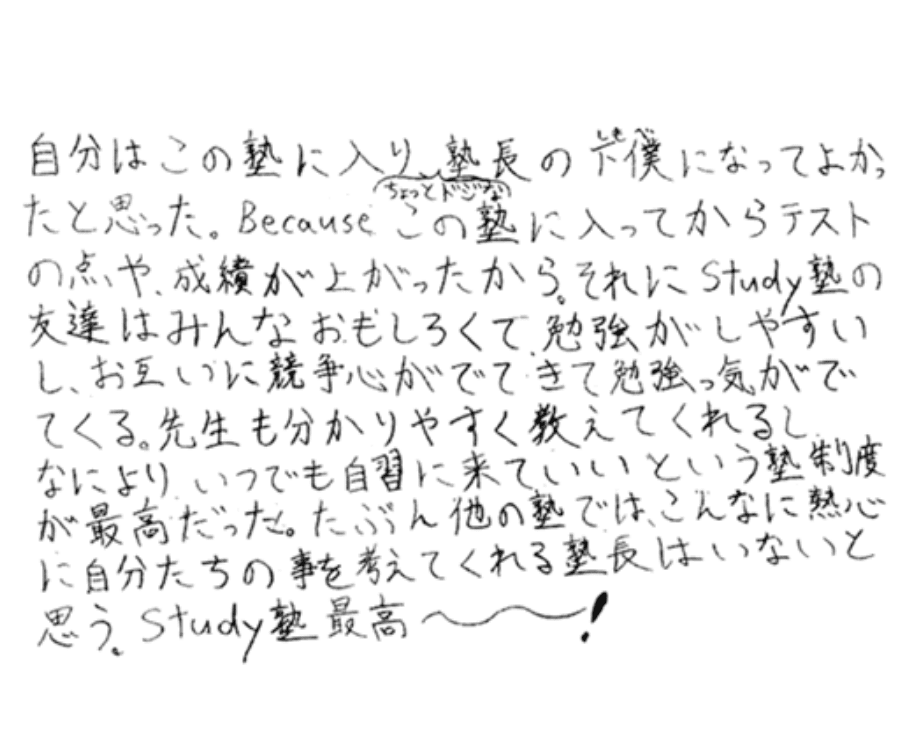 自分はこの塾に入り、塾長の下僕になってよかっ
しもべ
ちょっとドジな
たと思った。Because この塾に入ってからテスト
の点や、成績が上がったから。それにStudy塾の
友達はみんなおもしろくて、勉強がしやすい
し、お互いに競争心がでてきて勉強っ気がで
てくる。先生も分かりやすく教えてくれるし、
なにより、いつでも自習に来ていいという塾制度
が最高だった。たぶん他の塾では、こんなに熱心
に自分たちの事を考えてくれる塾長はいないと
思う。Study塾最高〜〜!